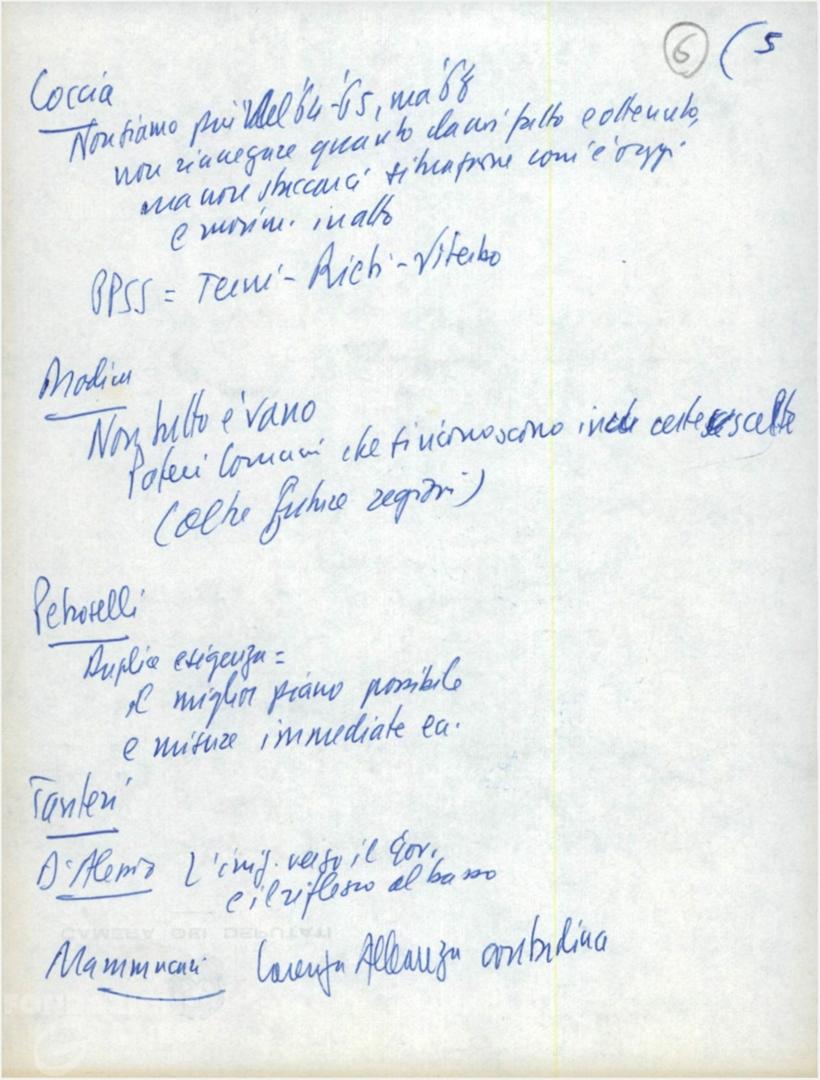 6 ( 5
Coccia
Non siamo più nel '64-'65, ma '68
non rinnegare quanto da noi fatto e ottenuto,
ma non staccarci situazione com'è oggi
e movim. in atto
PPSS = Terni - Rieti - Viterbo
Modica
Non tutto è vano
Poteri Comuni che si riconoscono in certe scelte
(oltre future regioni)
Petroselli
Duplice esigenza =
il miglior piano possibile
e misure immediate ecc.
D'Alessio L' verso il Gov.
e il riflesso al basso
CAMERA DEI DEPUTATI
Mammucari contadina